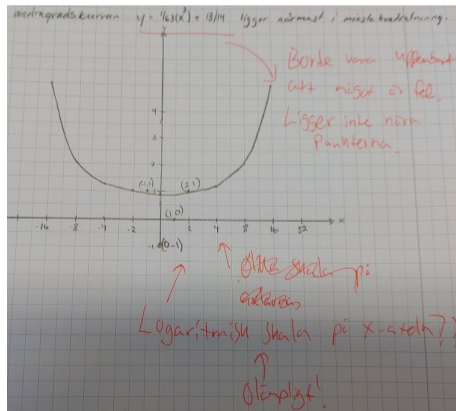 andragradskurvan y = 1/63(x²) + 13/14 ligger närmast i minstakvadratmening.
y
Borde vara uppenbart
att något är fel.
Ligger inte nära
punkterna.
4
3
2
(-1,1) (3,1)
-16 -8 -4 -2 (1,0) 2 4 8 16 32 x
-1 (0,-1)
Olika skalor på
axlarna
Logaritmisk skala på x-axeln??
Olämpligt!